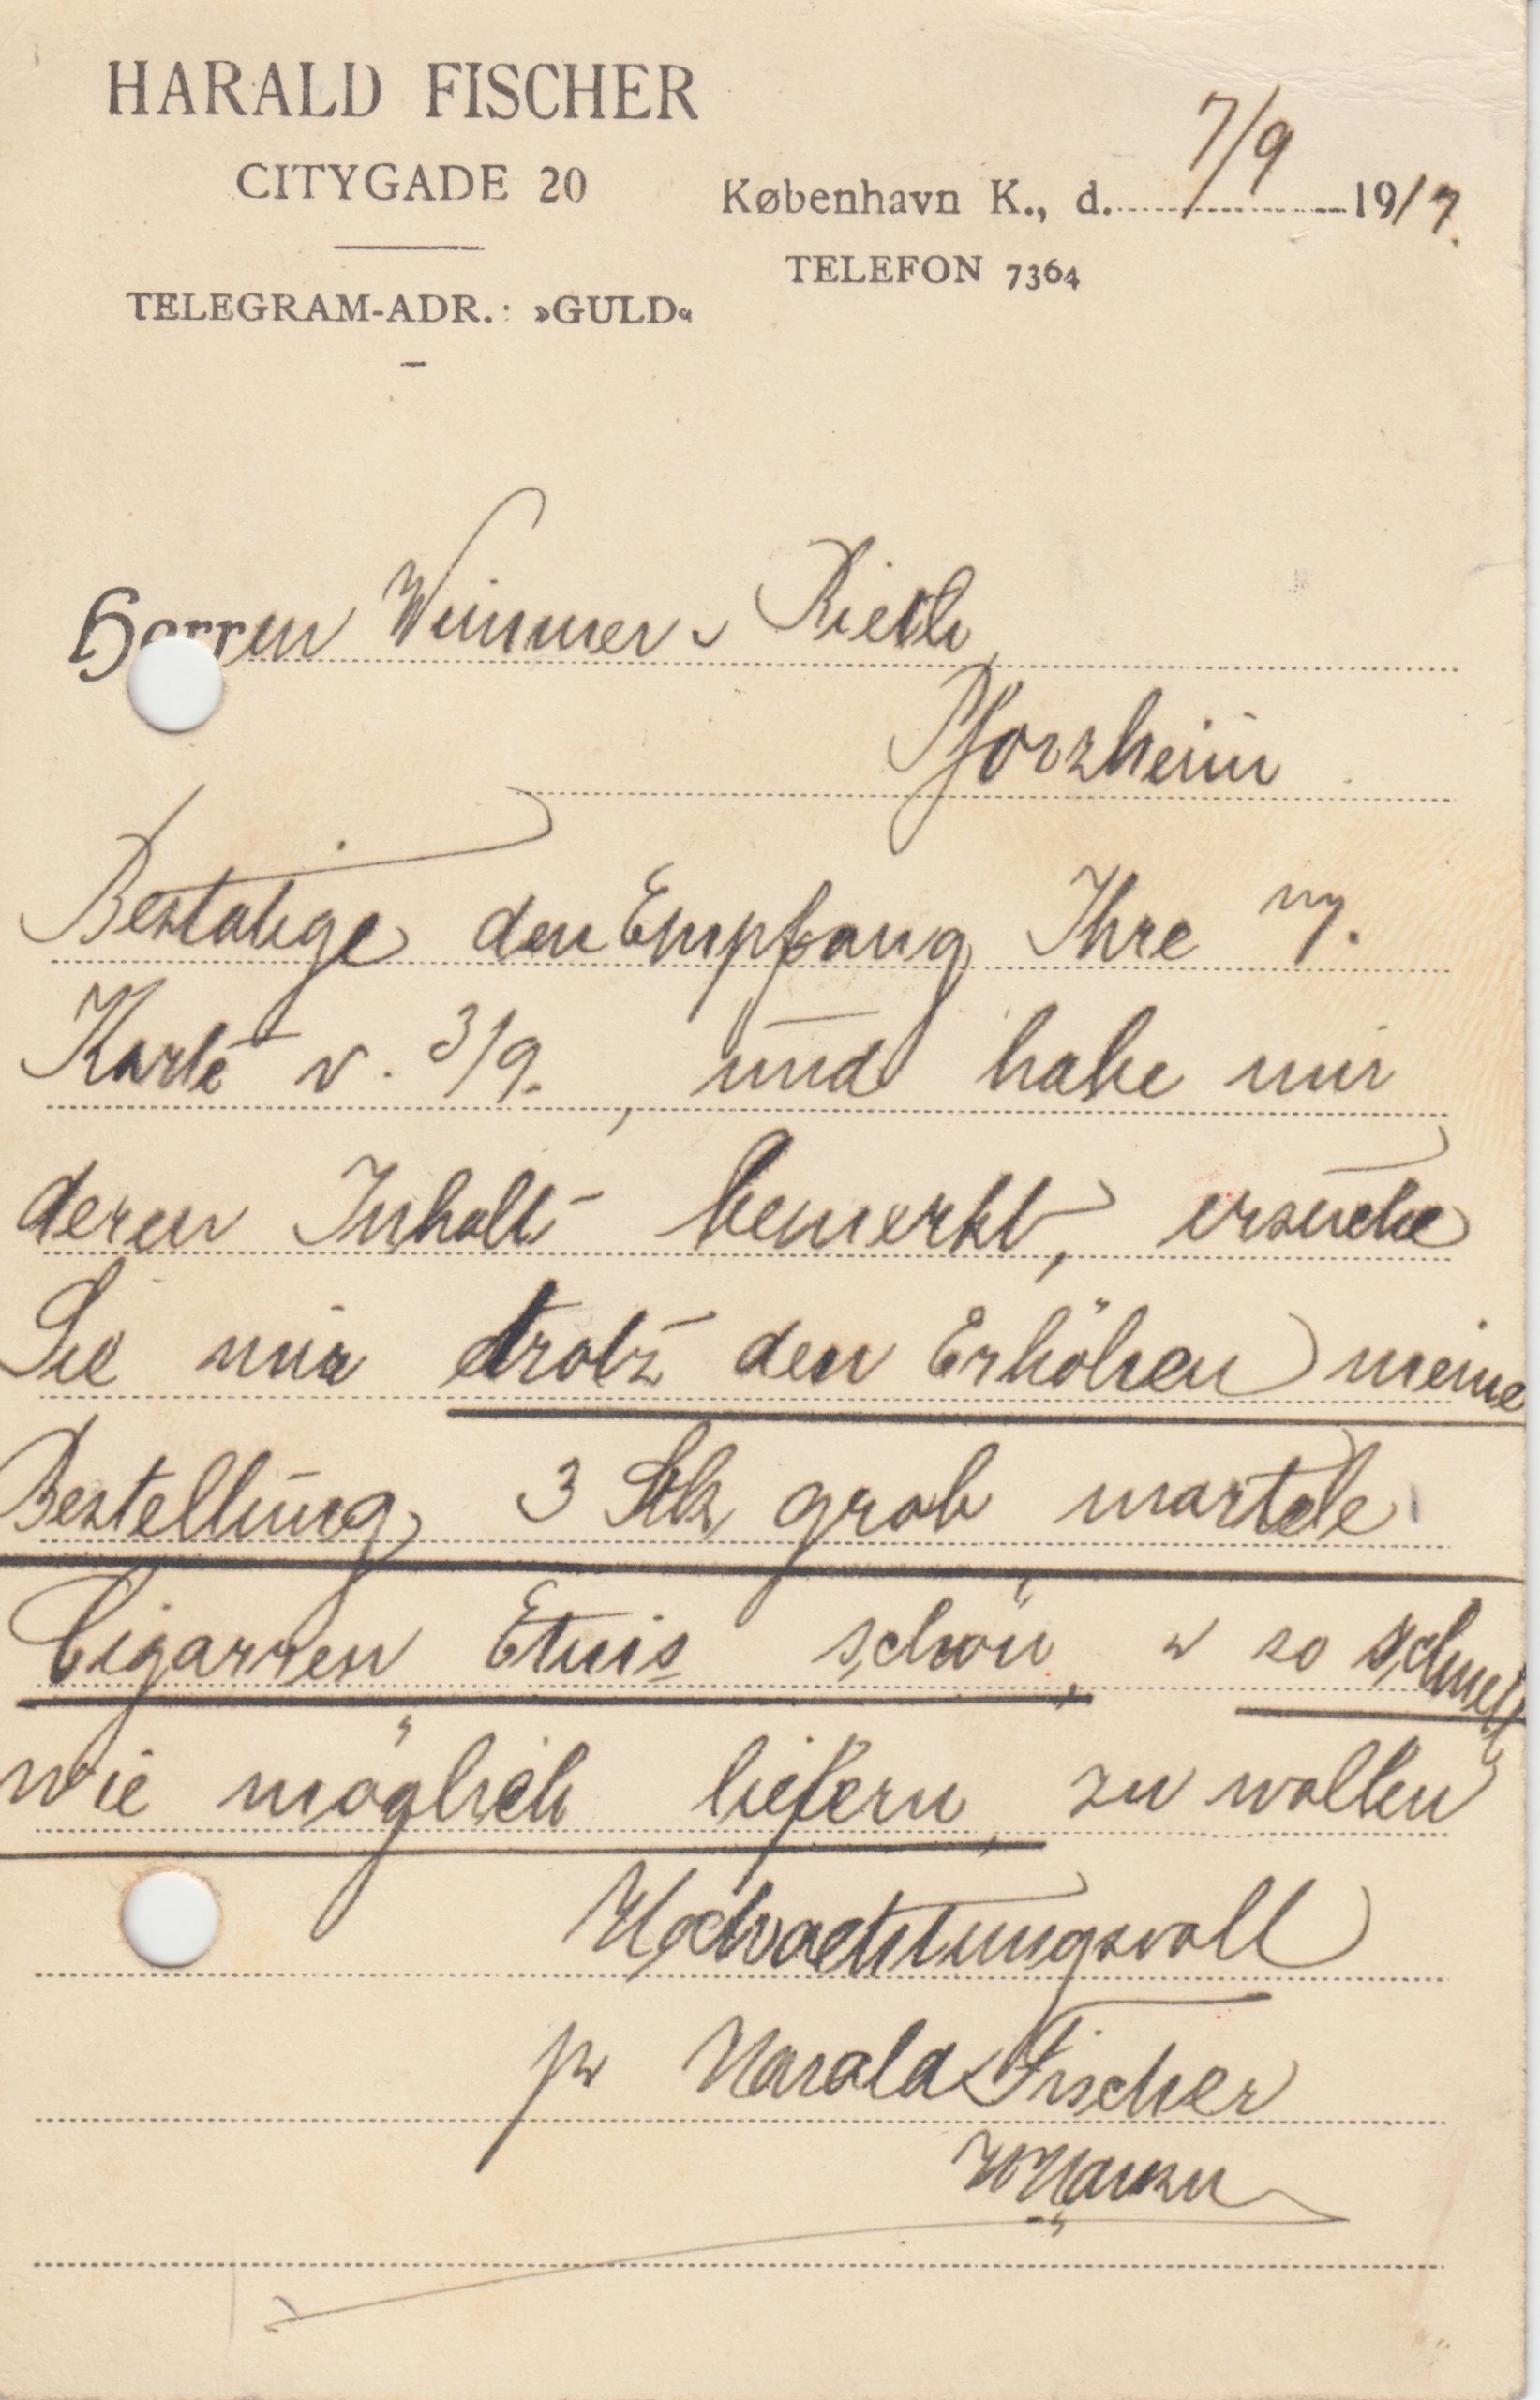 HARALD FISCHER
CITYGADE 20
København K., d. 7/9 1917.
TELEFON 7364
TELEGRAM-ADR.: »GULD«
Herren Wimmer & Rieth
Pforzheim
Bestätige den Empfang Ihre
Karte v. 3/9., und habe mir
deren Inhalt bemerkt, ersuche
Sie mir trotz den Erhöhen meine
Bestellung 3 Stk grob martelé
Cigarren Etuis schön, u so schnell
wie möglich liefern, zu wollen
Hochachtungsvoll
pr Harald Fischer